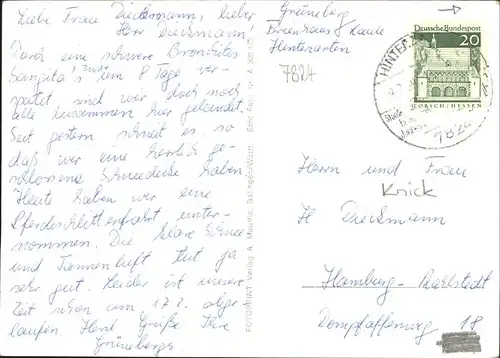 Liebe Frau Dieckmann, lieber
Herr Dieckmann,
Durch eine schwere Bronchitis
um 8 Tage ver-
spätet sind wir doch noch
alle zusammen hier gelandet.
Seit gestern schneit es so
daß wir eine herrlich ge-
schlossene Schneedecke haben.
Heute haben wir eine
Pferdeschlittenfahrt unter-
nommen. Die klare Schnee
und Tannenluft tut ja
sehr gut. Leider ist unsere
Zeit schon am 17.2. abge-
laufen. Herzl. Grüße Ihre
Grünebergs
FOTOPRINT Verlag A.
Grüneberg
Hinterzarten
7824
Deutsche Bundespost
20
LORSCH/HESSEN
HINTER
7824
Herrn und Frau
Knick
H Dieckmann
Hamburg-Rahlstedt
Dompfaffenweg 18